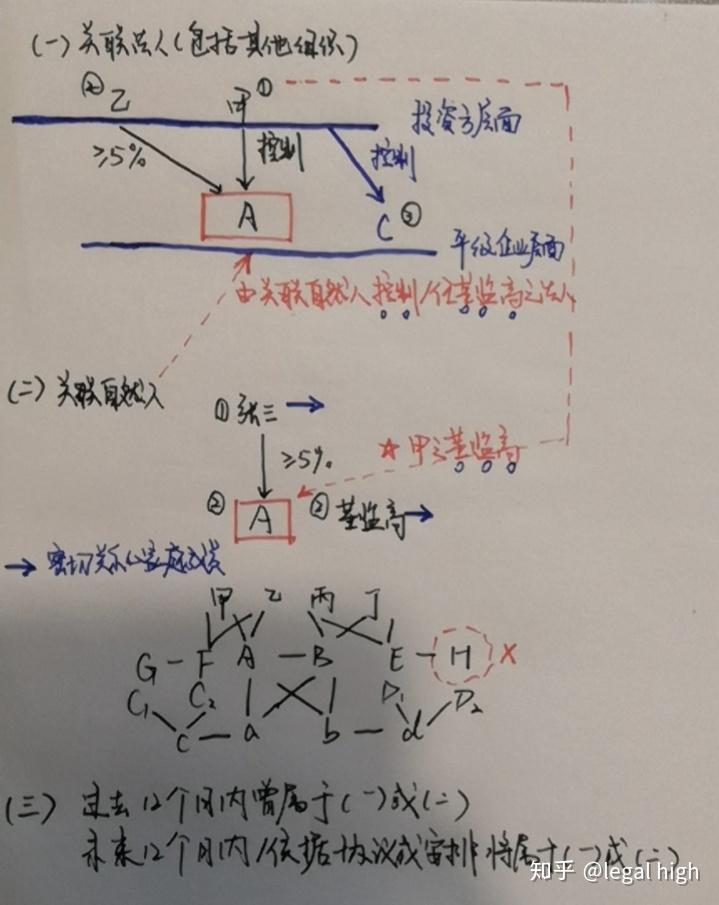 (一) 关联法人(包括其他组织)
② 乙 甲 ①
投资方层面
≥5% 控制 控制
A C ③
平级企业层面
由关联自然人控制/任董监高之法人
(二) 关联自然人
① 张三 →
≥5%
☆ 甲之董监高
② A ② 董监高 →
→ 密切关系之家庭成员
甲 乙 丙 丁
G - F A - B E - H X
C₁ C₂ D₁ D₂
c - a b - d
(三) 过去12个月内曾属于(一)或(二)
未来12个月内/依据协议或安排将属于(一)或(二)
知乎 @legal high